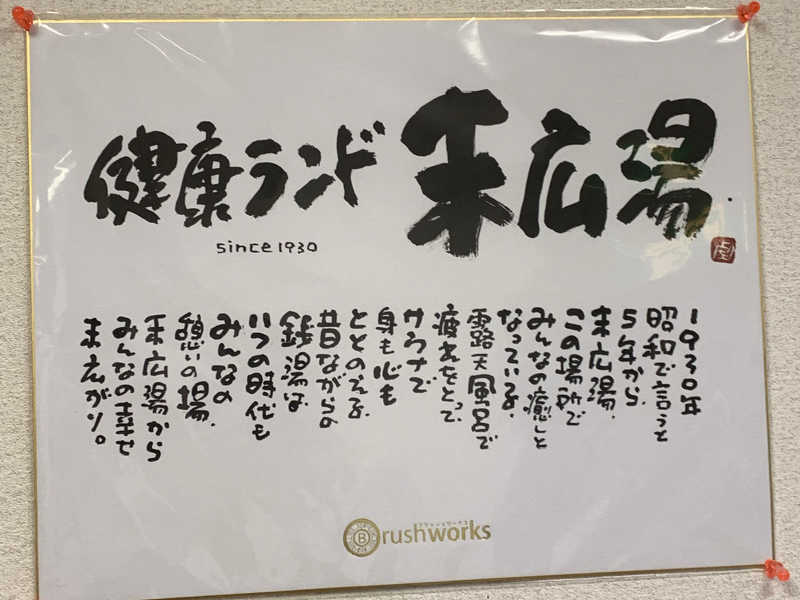 健康ランド 末広湯
since 1930
1930年
昭和で言うと
5年から
末広湯
この場所で
みんなの癒しと
なっている。
露天風呂で
疲れをとって、
サウナで
身も心も
ととのえる。
昔ながらの
銭湯は
いつの時代も
みんなの
憩いの場。
末広湯から
みんなの幸せ
末広がり。
Brushworks